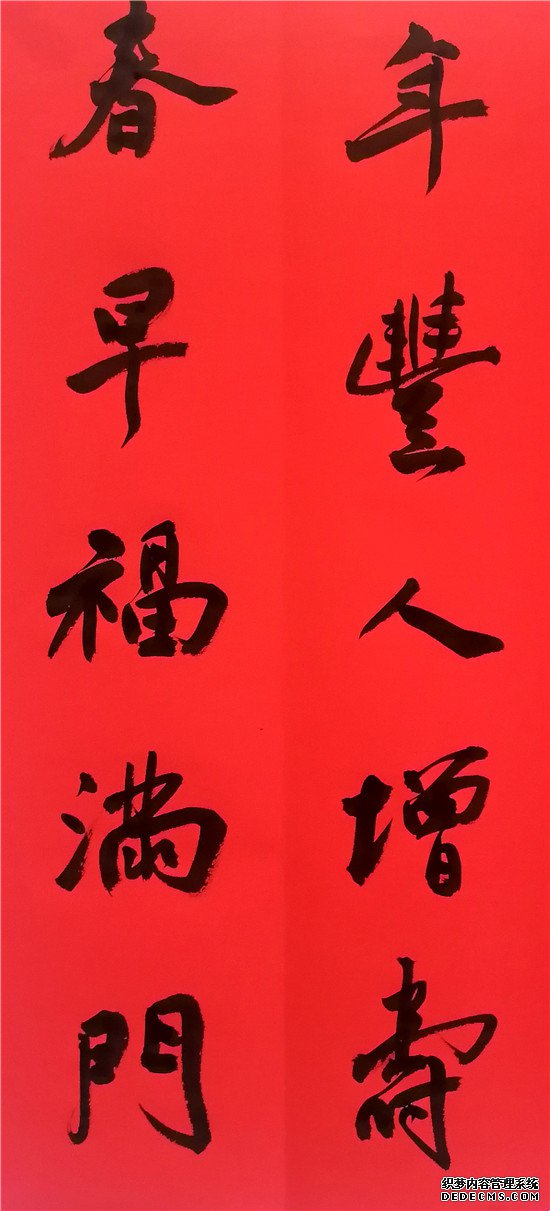 年豐人增壽
春早福滿門
织梦内容管理系统
DEDECMS.COM